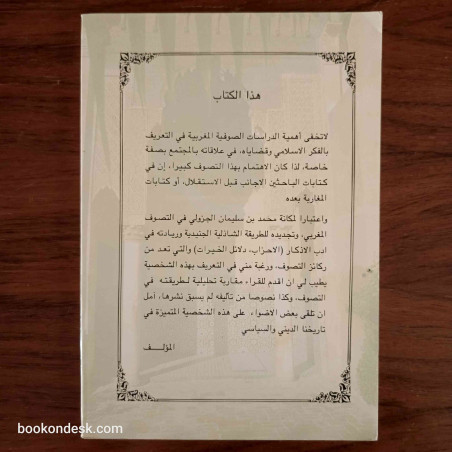 هذا الكتاب
لاتخفى أهمية الدراسات الصوفية المغربية في التعريف
بالفكر الاسلامي وقضاياه، في علاقاته بالمجتمع بصفة
خاصة، لذا كان الاهتمام بهذا التصوف كبيرا، إن في
كتابات الباحثين الاجانب قبل الاستقلال، أو كتابات
المغاربة بعده
واعتبارا لمكانة محمد بن سليمان الجزولي في التصوف
المغربي، وتجديده للطريقة الشاذلية الجنيدية وريادته في
ادب الاذكار (الاحزاب، دلائل الخيرات) والتي تعد من
ركائز التصوف، ورغبة مني في التعريف بهذه الشخصية
يطيب لي ان اقدم للقراء مقاربة تحليلية لطريقته في
التصوف، وكذا نصوصا من تآليفه لم يسبق نشرها، آمل
ان تلقى بعض الاضواء على هذه الشخصية المتميزة في
تاريخنا الديني والسياسي
المؤلف
bookondesk.com